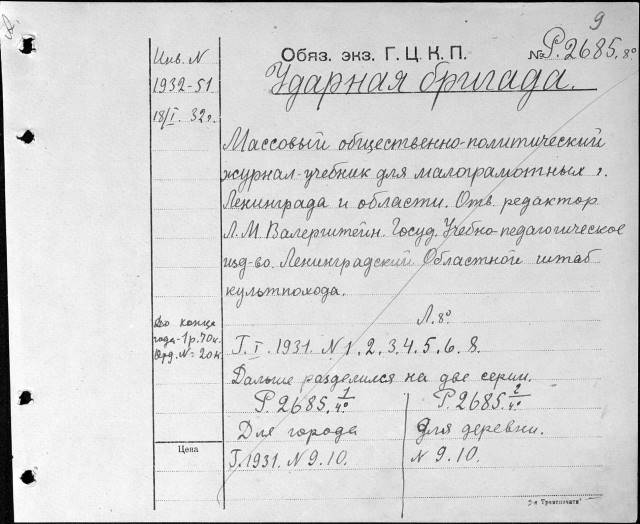 9
Инв. N
1932-51
18/I. 32г.
Обяз. экз. Г. Ц. К. П.
№ Р.2685. 8°
Ударная бригада.
Массовый общественно-политический
журнал-учебник для малограмотных г.
Ленинграда и области. Отв. редактор
Л. М. Валерштейн. Госуд. Учебно-педагогическое
изд-во. Ленинградский Областной штаб
культпохода.
До конца
года-1р.70к.
Отд. N=20к.
Л. 8°.
Г. I. 1931. N 1. 2. 3. 4. 5. 6. 8.
Дальше разделился на две серии.
Р. 2685. 1/4°
Р. 2685. 2/4°
Для города
Для деревни.
Цена
Г. 1931. N 9. 10.
N 9. 10.